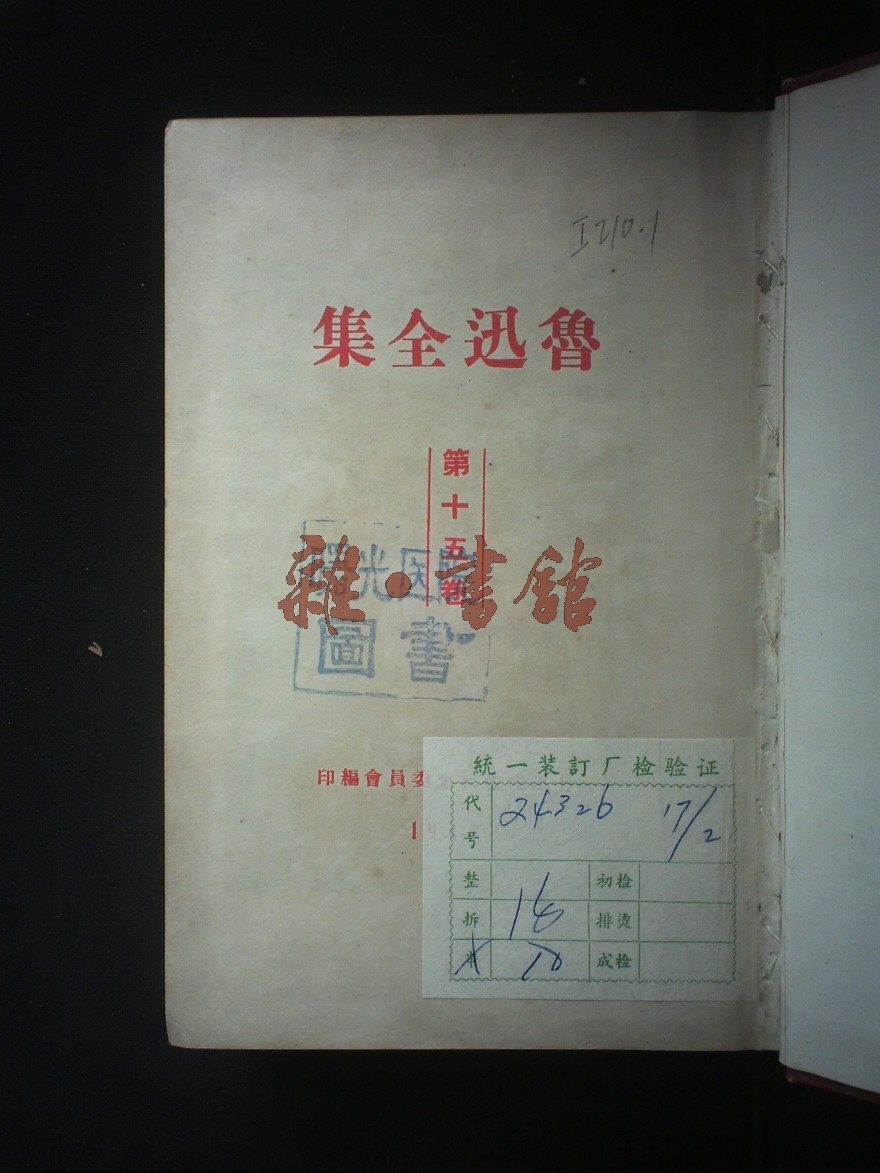 I210.1
魯迅全集
第十五卷
雜·書館
曙光医院
圖書
印編會員委
統一装訂厂检验证
代号 24326 17/2
整 初检
拆 16 排烫
10 成检